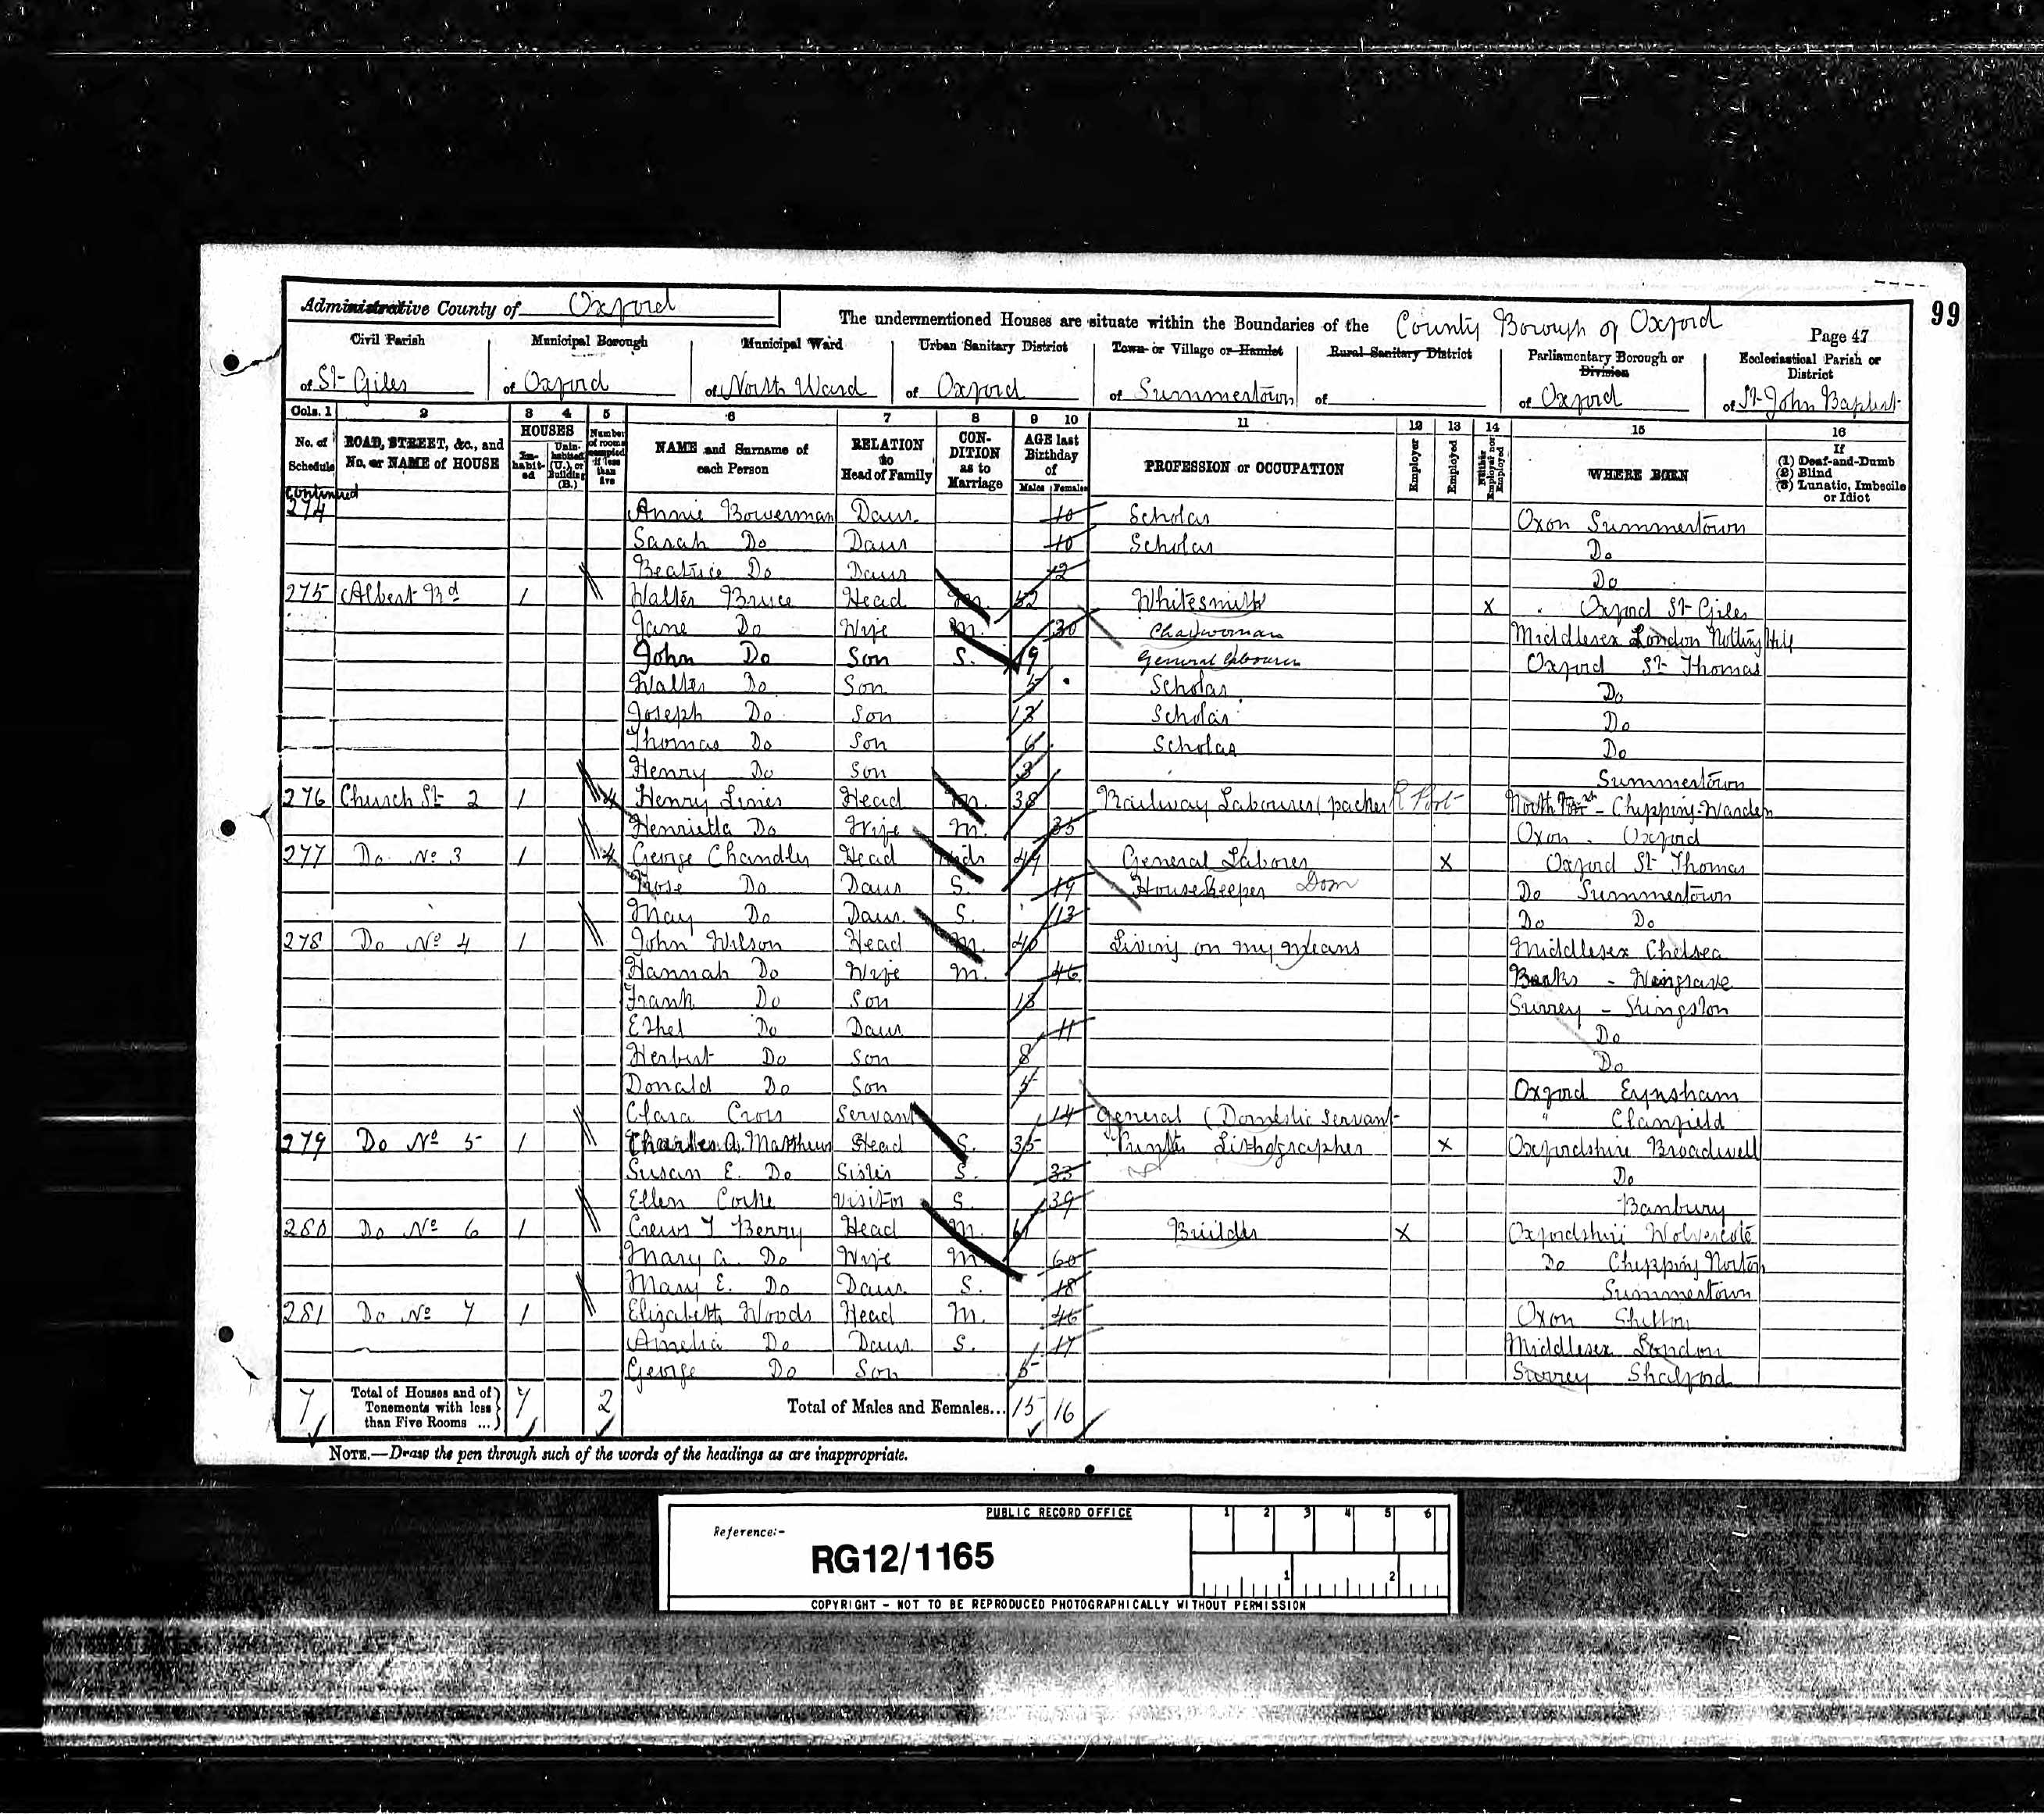 Administrative County of Oxford
The undermentioned Houses are situate within the Boundaries of the County Borough of Oxford
Page 47
99
Civil Parish of St Giles
Municipal Borough of Oxford
Municipal Ward of North Ward
Urban Sanitary District of Oxford
Town or Village or Hamlet of Summertown
Rural Sanitary District of
Parliamentary Borough or Division of Oxford
Ecclesiastical Parish or District of St John Baptist
Cols. 1 2 3 4 5 6 7 8 9 10 11 12 13 14 15 16
No. of Schedule
ROAD, STREET, &c., and No. or NAME of HOUSE
HOUSES
Inhabited
Uninhabited (U.), or Building (B.)
Number of rooms occupied if less than five
NAME and Surname of each Person
RELATION to Head of Family
CONDITION as to Marriage
AGE last Birthday of
Males Females
PROFESSION or OCCUPATION
Employer
Employed
Neither Employer nor Employed
WHERE BORN
If
(1) Deaf-and-Dumb
(2) Blind
(3) Lunatic, Imbecile or Idiot
continued
274 Annie Bowerman Daur 10 Scholar Oxon Summertown
Sarah Do Daur 10 Scholar Do
Beatrice Do Daur 2 Do
275 Albert Rd 1 Walter Bruce Head M. 52 Whitesmith X Oxford St Giles
Jane Do Wife M. 30 Charwoman Middlesex London Notting Hill
John Do Son S. 19 General labourer Oxford St Thomas
Walter Do Son 5 Scholar Do
Joseph Do Son 13 Scholar Do
Thomas Do Son 6 Scholar Do
Henry Do Son 3 Summertown
276 Church St 2 1 4 Henry Lines Head M. 38 Railway Labourer (packer Chipping Warden
Henrietta Do Wife M. 35 Oxon Oxford
277 Do No 3 1 4 George Chandler Head Widr 49 General Laborer X Oxford St Thomas
Rose Do Daur S. 19 Housekeeper Dom Do Summertown
May Do Daur S. 13 Do Do
278 Do No 4 1 John Wilson Head M. 40 Living on my Means Middlesex Chelsea
Hannah Do Wife M. 46 Bucks - Wingrave
Frank Do Son 18 Surrey - Kingston
Ethel Do Daur 11 Do
Herbert Do Son 8 Do
Donald Do Son 5 Oxford Eynsham
Clara Cross Servant 14 General (Domestic Servant " Clanfield
279 Do No 5 1 Charles A. Matthews Head S. 35 Printer Lithographer X Oxfordshire Broadwell
Susan E. Do Sister S. 33 Do
Ellen Cooke Visitor S. 39 Banbury
280 Do No 6 1 Crews T Berry Head M. 61 Builder X Oxfordshire Wolvercote
Mary A. Do Wife M 60 Do Chipping Norton
Mary E. Do Daur S. 18 Summertown
281 Do No 7 1 Elizabeth Woods Head M. 46 Oxon Shilton
Amelia Do Daur S. 17 Middlesex London
George Do Son 5 Surrey Shalford
7 Total of Houses and of Tenements with less than Five Rooms ... 7 2 Total of Males and Females... 15 16
NOTE.—Draw the pen through such of the words of the headings as are inappropriate.
PUBLIC RECORD OFFICE
Reference:-
RG12/1165
1 2 3 4 5 6
1 2
COPYRIGHT - NOT TO BE REPRODUCED PHOTOGRAPHICALLY WITHOUT PERMISSION